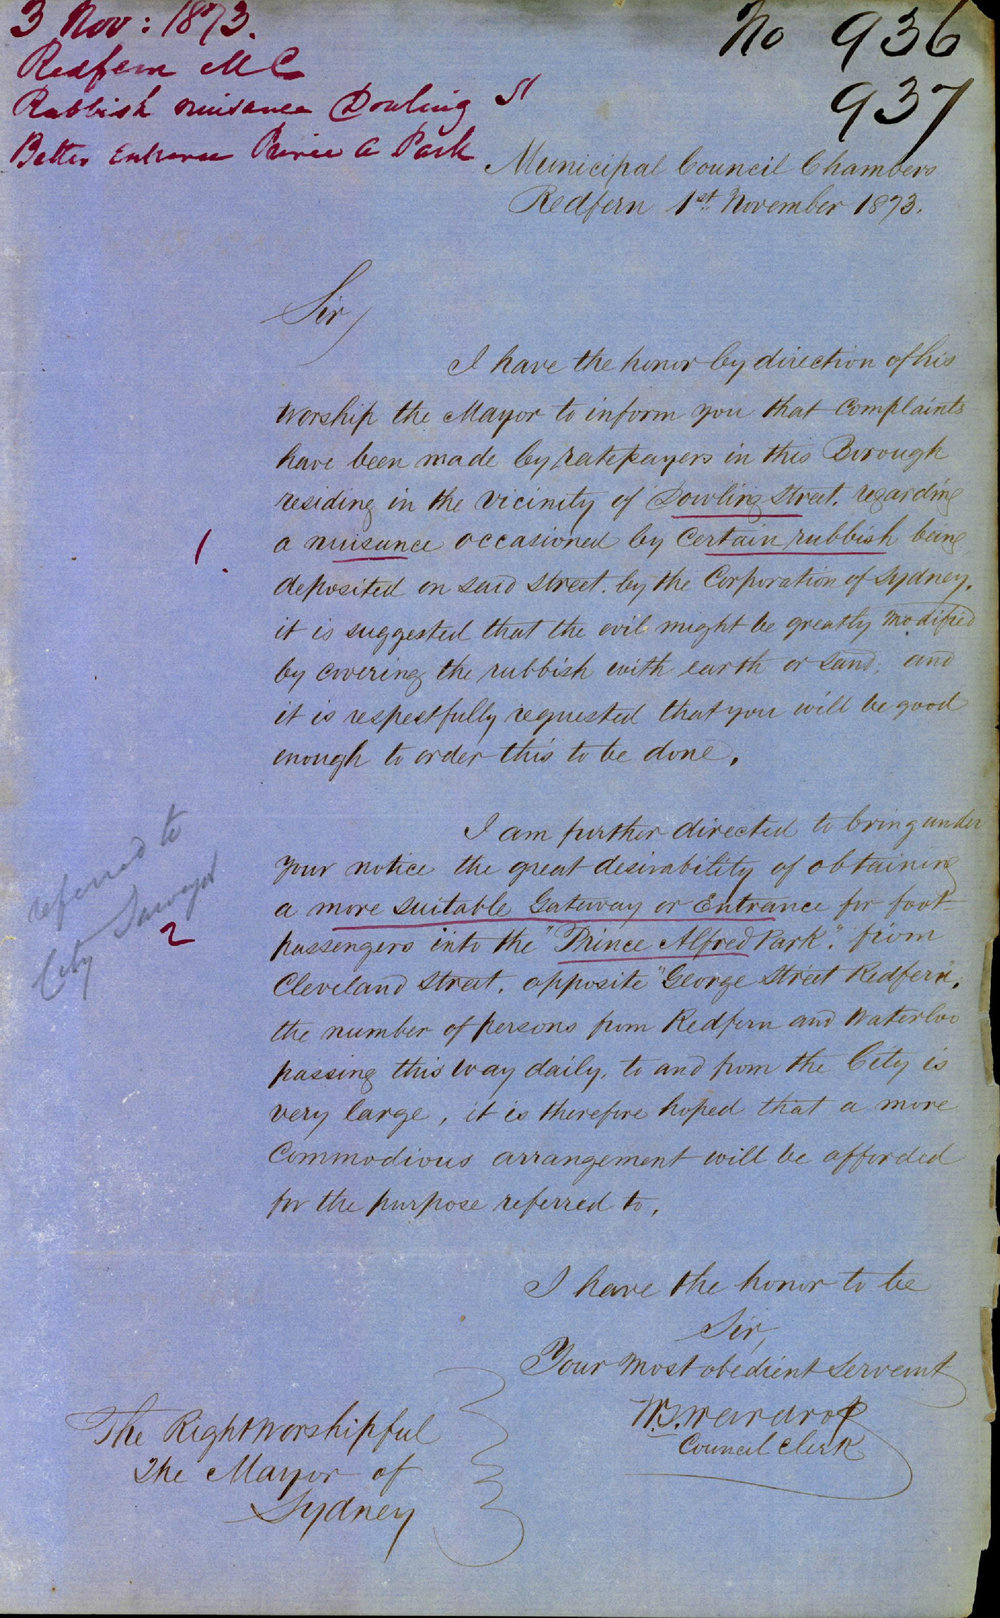 3 Nov: 1873.
Redfern M C
Rubbish nuisance Dowling St
Better Entrance Prince A Park
No 936
937
Municipal Council Chambers
Redfern 1st November 1873.
Sir,
I have the honor by direction of his
Worship the Mayor to inform you that Complaints
have been made by ratepayers in this Borough
residing in the vicinity of Dowling Street. regarding
1.
a nuisance occasioned by Certain rubbish being
deposited on said street. by the Corporation of Sydney.
it is suggested that the evil might be greatly modified
by covering the rubbish with earth or sand; and
it is respectfully requested that you will be good
enough to order this to be done.
I am further directed to bring under
Your notice the great desirability of obtaining
a more suitable Gateway or Entrance for foot-
referred to
City Surveyor
2
passengers into the "Prince Alfred Park". from
Cleveland Street. opposite "George Street Redfern".
the number of persons from Redfern and Waterloo
passing this way daily, to and from the City is
very large, it is therefore hoped that a more
Commodious arrangement will be afforded
for the purpose referred to.
I have the honor to be
Sir,
Your most obedient Servant
Wardrop
Council Clerk
The Right Worshipful
The Mayor of
Sydney